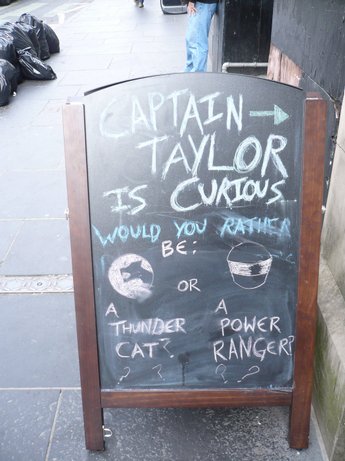 CAPTAIN →
TAYLOR
IS CURIOUS
WOULD YOU RATHER
BE:
OR
A THUNDER CAT?
A POWER RANGER?
? ? ? ?